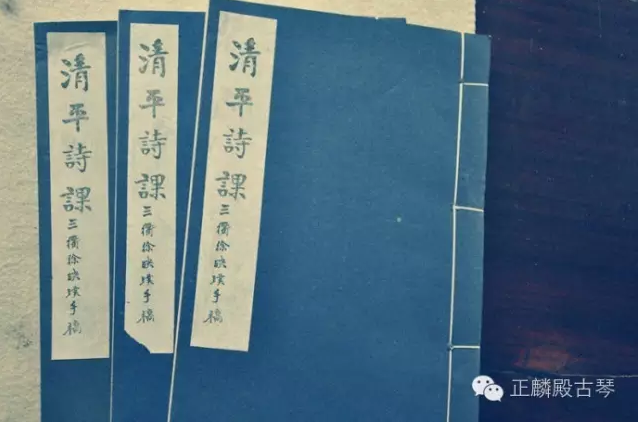 清平詩課
三衢徐映璞手稿
清平詩課
三衢徐映璞手稿
清平詩課
三衢徐映璞手稿
正麟殿古琴